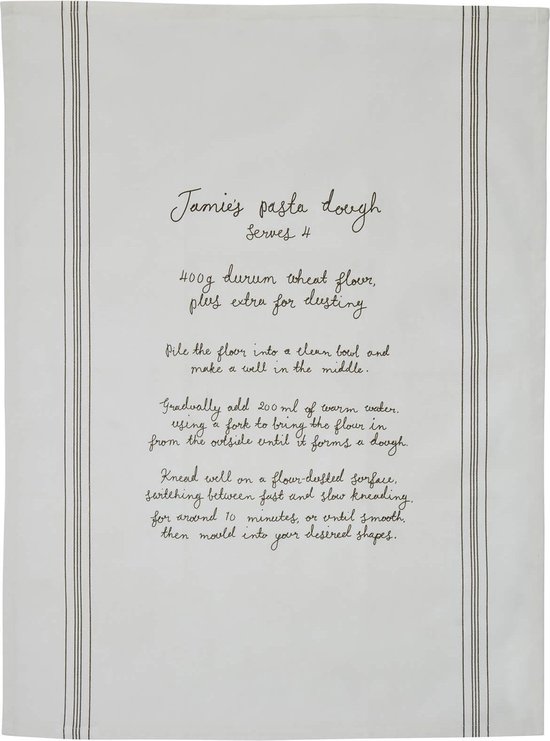 Jamie's pasta dough
Serves 4
400g durum wheat flour,
plus extra for dusting
Pile the flour into a clean bowl and
make a well in the middle.
Gradually add 200ml of warm water,
using a fork to bring the flour in
from the outside until it forms a dough.
Knead well on a flour-dusted surface,
switching between fast and slow kneading,
for around 10 minutes, or until smooth,
then mould into your desired shapes.